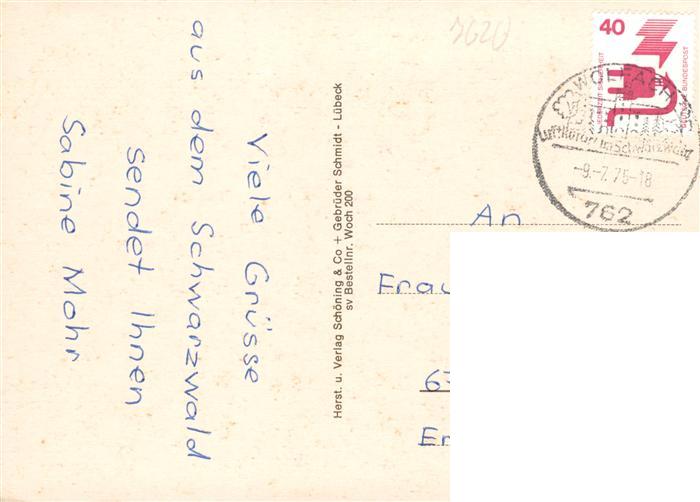 Viele Grüsse
aus dem Schwarzwald
sendet Ihnen
Sabine Mohr
Herst. u. Verlag Schöning & Co + Gebrüder Schmidt - Lübeck
sv Bestellnr. Woch 200
7620
40
DEUTSCHE BUNDESPOST
WOLFACH
Luftkurort im Schwarzwald
-9.-7.75-18
762
An
Frau